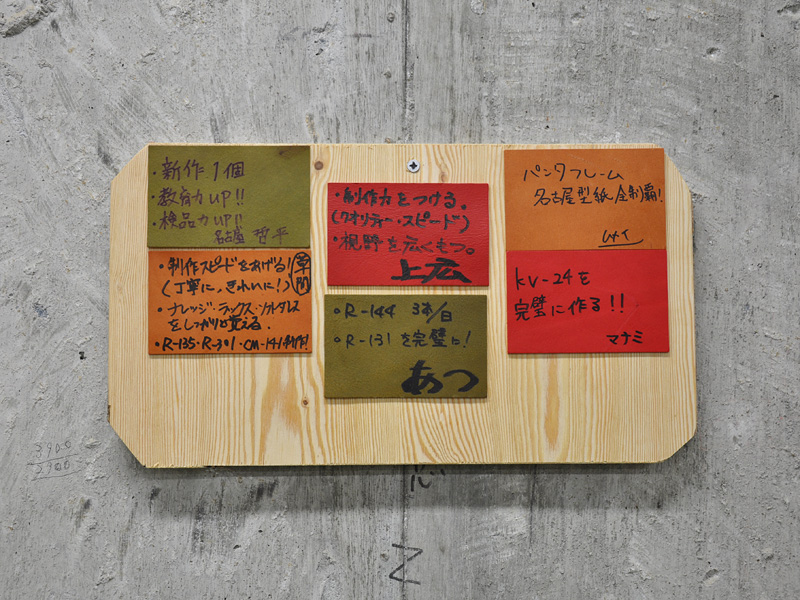 ・新作1個
・教育力UP!!
・検品力UP!!
名古屋 哲平
・制作スピードをあげる!
(丁寧に、きれいに!)
・ナレッジ・ラックス・ソフトタレス
をしっかり覚える.
・R-135・R-301・CM-141新作!
・制作力をつける。
(クオリティー・スピード)
・視野を広くもつ。
上広
・R-144 3本/日
・R-131を完璧に!
あつ
パンタフレーム
名古屋型紙全制覇!
KV-24を
完璧に作る!!
マナミ
3900
2900
心
Z